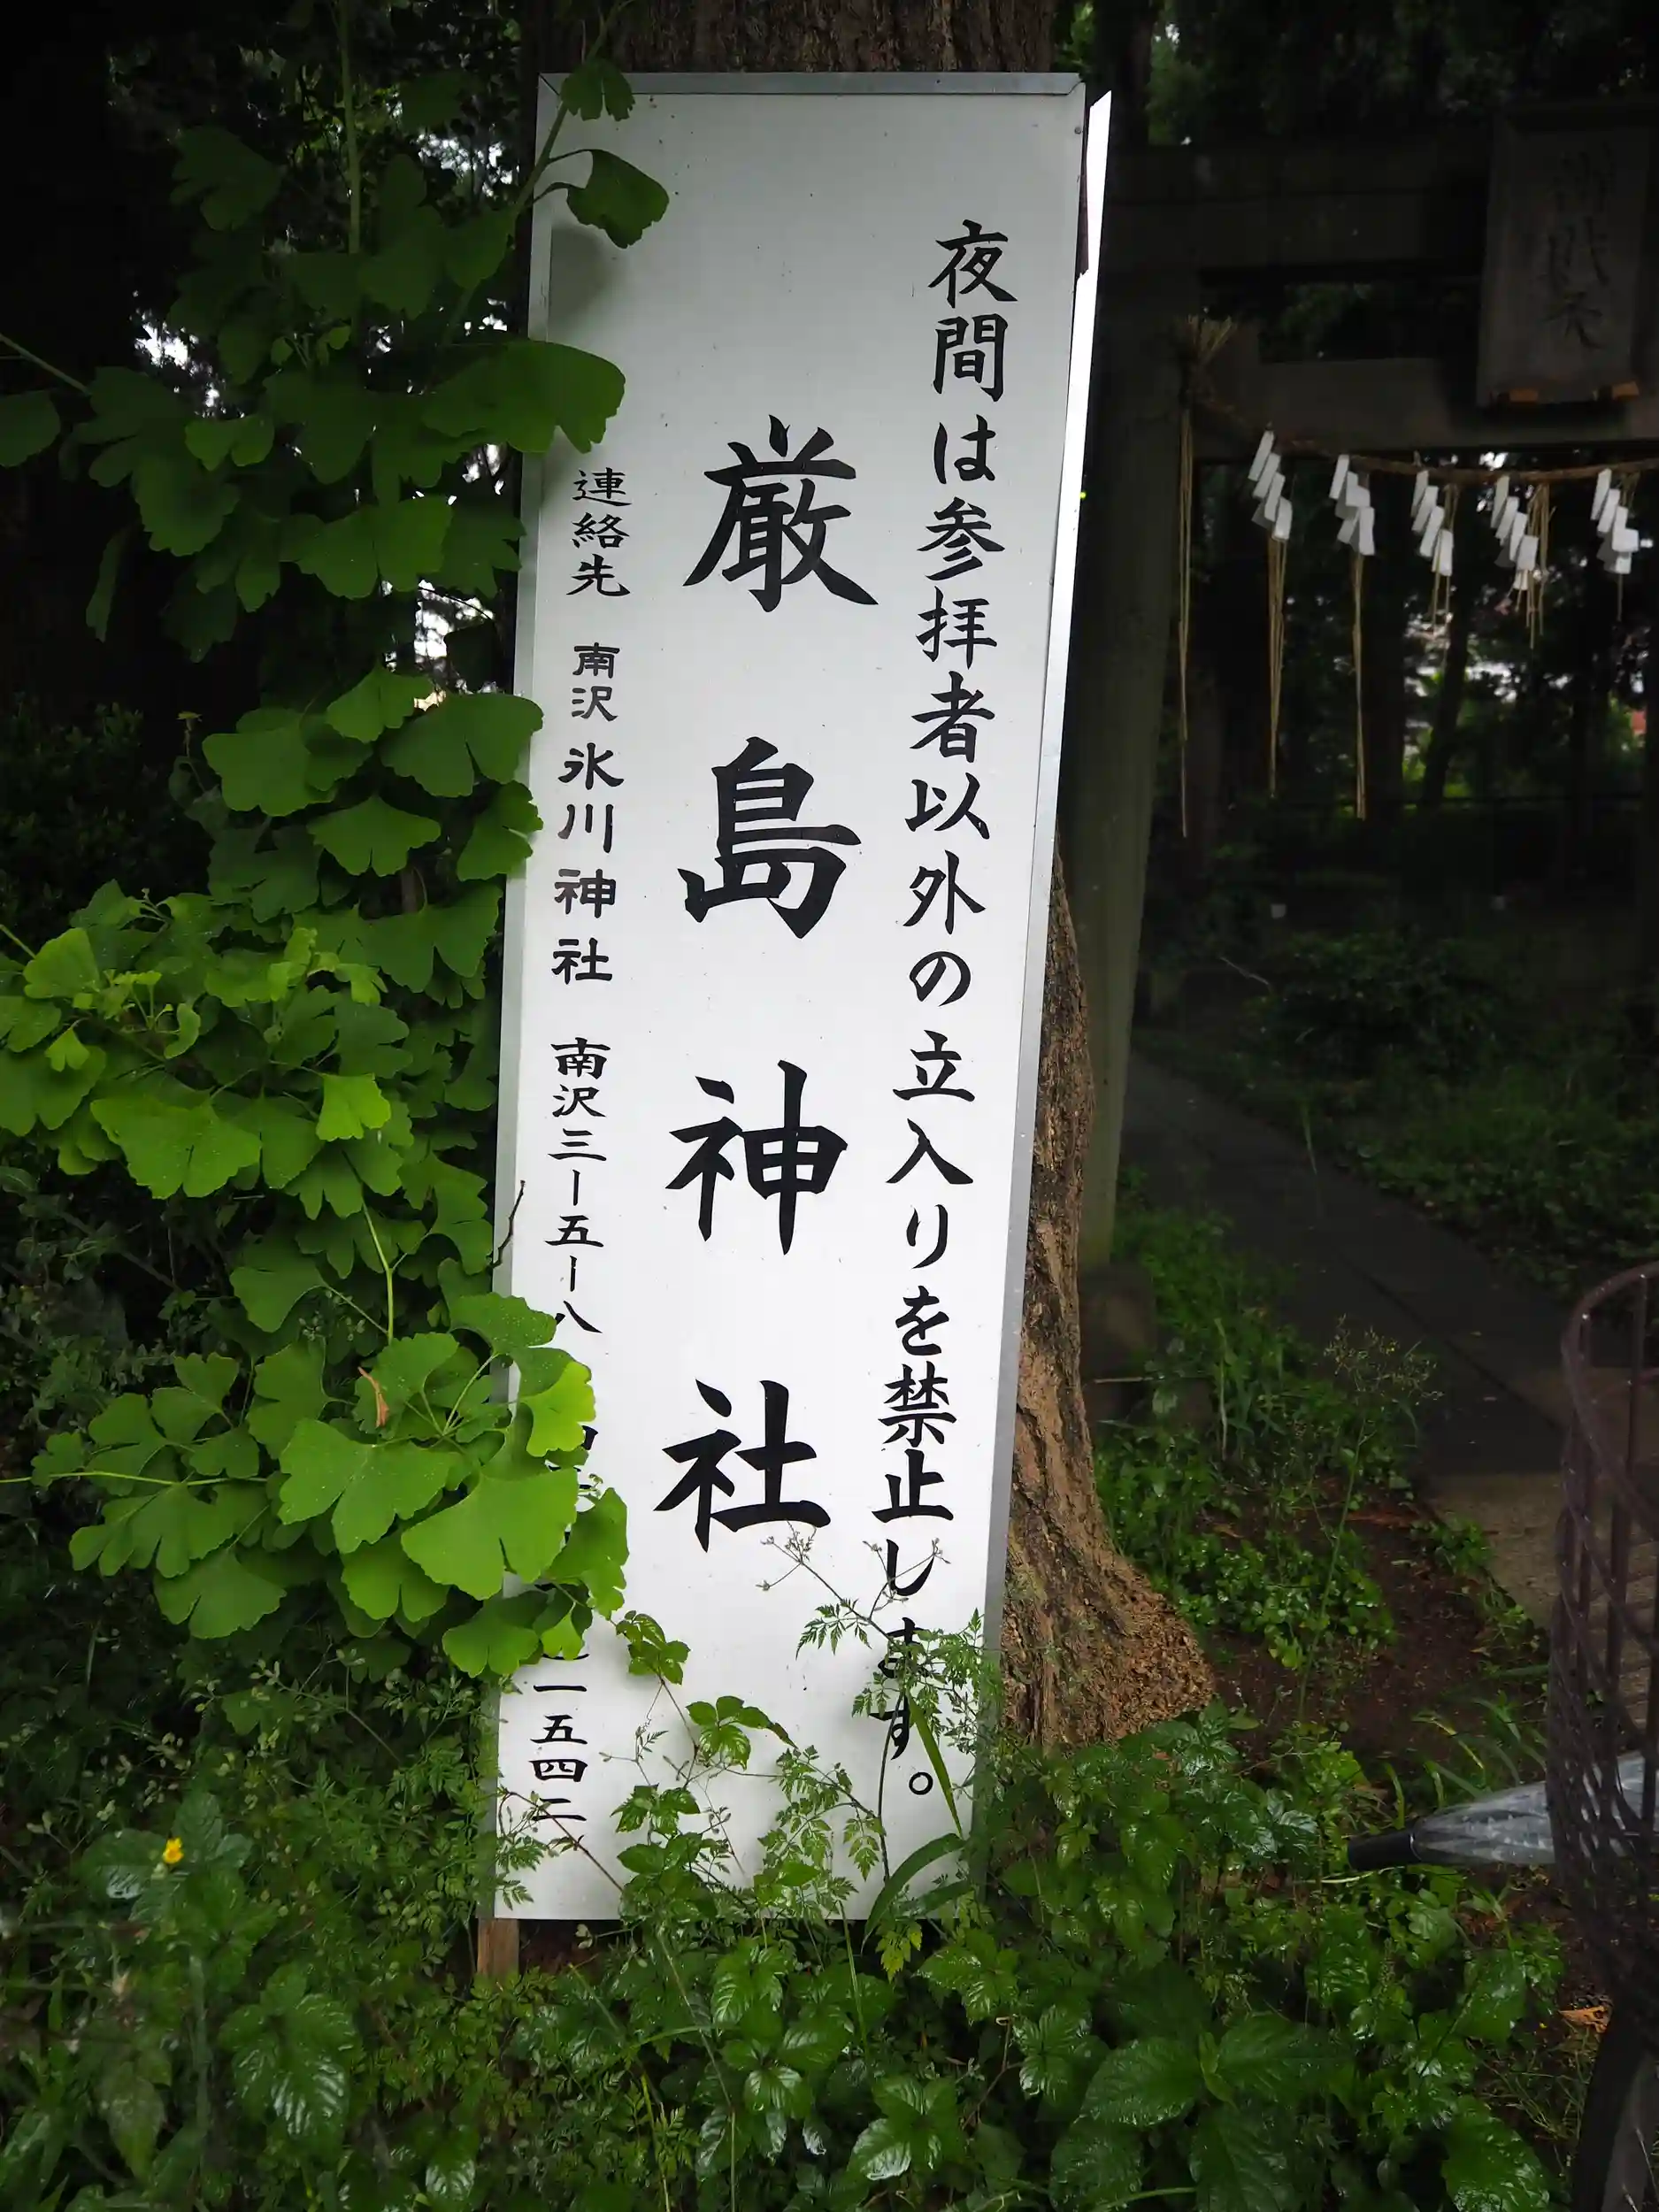 夜間は参拝者以外の立入りを禁止します。
厳島神社
連絡先 南沢氷川神社 南沢三ー五ー八 一五四二